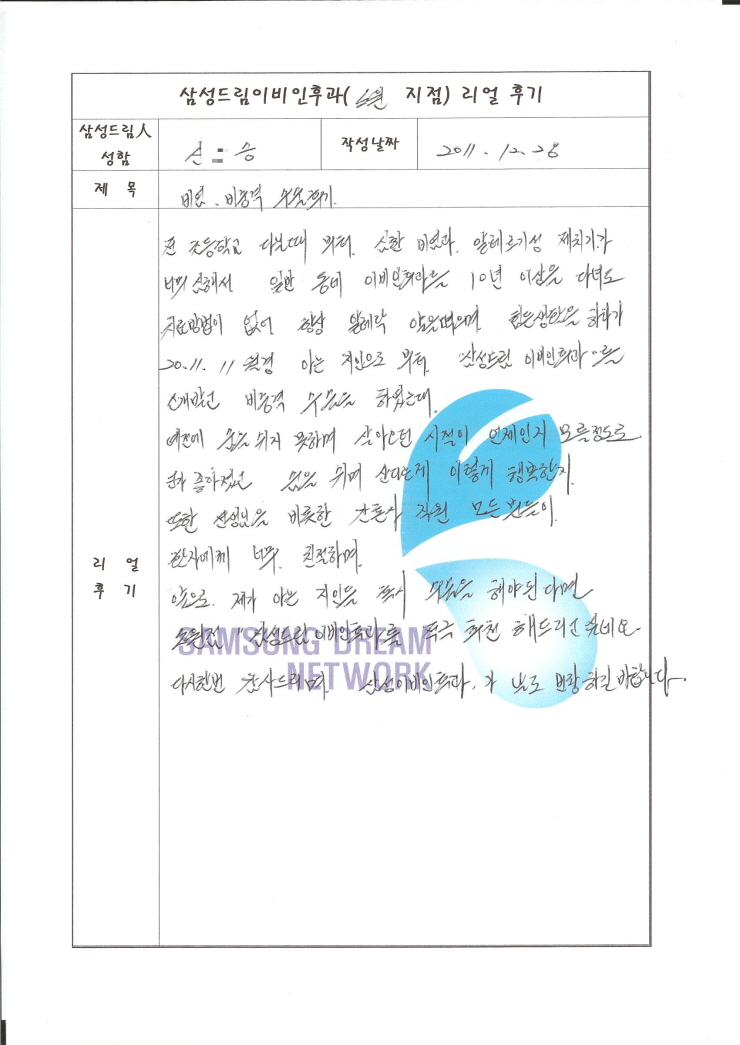 삼성드림이비인후과( 노원 지점) 리얼 후기
삼성드림人
성함
신 승
작성날짜
2011. 12. 28
제 목
비염. 비중격 수술후기.
리 얼
후 기
전 초등학교 다닐때 부터. 심한 비염과. 알레르기성 재치기가
너무 심해서 일반 동네 이비인후과를 10년 이상을 다녀도
치료방법이 없어 항상 알레락 약을먹으며. 힘든생활을 하다가
20.11. 11 월경 아는 지인으로 부터. "삼성드림 이비인후과"를
소개받던 비중격 수술을 하였는대.
예전에 숨을 쉬지 못하며 살아오던 시절이 언제인지 모를정도로
숨을 쉬며 산다는게 이렇게 행복한지.
또한 선생님을 비롯한 간호사 직원 모든분들이.
환자에게 너무. 친절하며.
앞으로. 제가 아는 지인들 혹시 수술을 해야된다면
노원점 "삼성드림이비인후과를 적극 추천 해드리고 싶네요.
다시한번 감사드리며. 삼성이비인후과.가 날로 번창하길바랍니다.
SAMSUNG DREAM
NETWORK